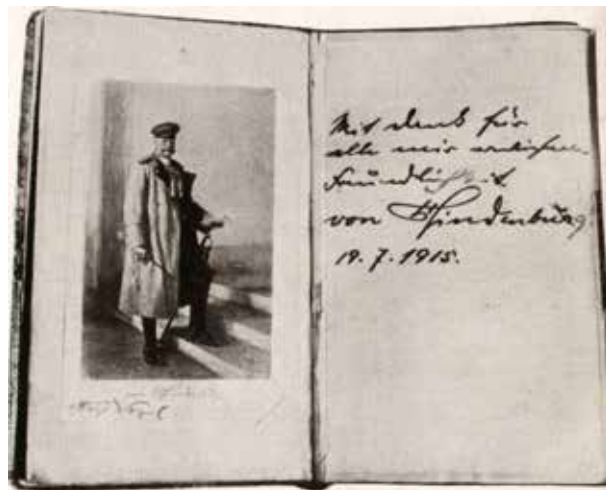 Mit Dank für
alle mir erwiesene
Freundlichkeit
von Hindenburg
19.7.1915.